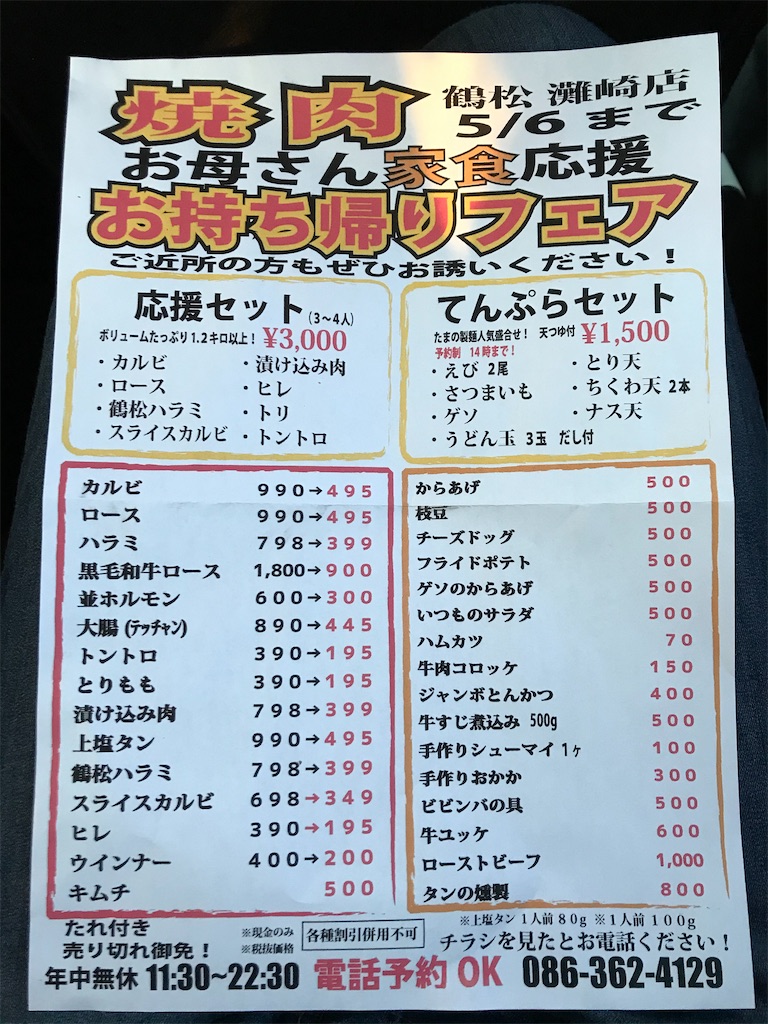 焼肉 鶴松 灘崎店
5/6まで
お母さん家食応援
お持ち帰りフェア
ご近所の方もぜひお誘いください！
応援セット(3～4人)
ボリュームたっぷり1.2キロ以上！ ¥3,000
・カルビ ・漬け込み肉
・ロース ・ヒレ
・鶴松ハラミ ・トリ
・スライスカルビ ・トントロ
てんぷらセット
たまの製麺人気盛合せ！ 天つゆ付 ¥1,500
予約制 14時まで！
・えび 2尾 ・とり天
・さつまいも ・ちくわ天 2本
・ゲソ ・ナス天
・うどん玉 3玉 だし付
カルビ 990→495
ロース 990→495
ハラミ 798→399
黒毛和牛ロース 1,800→900
並ホルモン 600→300
大腸(テッチャン) 890→445
トントロ 390→195
とりもも 390→195
漬け込み肉 798→399
上塩タン 990→495
鶴松ハラミ 798→399
スライスカルビ 698→349
ヒレ 390→195
ウインナー 400→200
キムチ 500
からあげ 500
枝豆 500
チーズドッグ 500
フライドポテト 500
ゲソのからあげ 500
いつものサラダ 500
ハムカツ 70
牛肉コロッケ 150
ジャンボとんかつ 400
牛すじ煮込み 500g 500
手作りシューマイ 1ヶ 100
手作りおかか 300
ビビンバの具 500
牛ユッケ 600
ローストビーフ 1,000
タンの燻製 800
※上塩タン 1人前80g ※1人前100g
たれ付き
売り切れ御免！
※現金のみ
※税抜価格
各種割引併用不可
チラシを見たとお電話ください！
年中無休 11:30~22:30 電話予約OK 086-362-4129